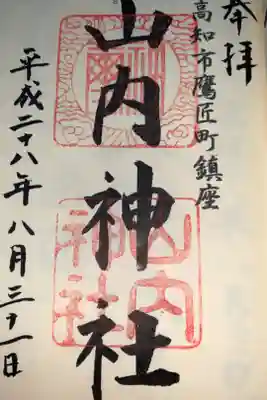 奉拝
高知市鷹匠町鎮座
山内神社
平成二十八年八月三十一日
山内
神社